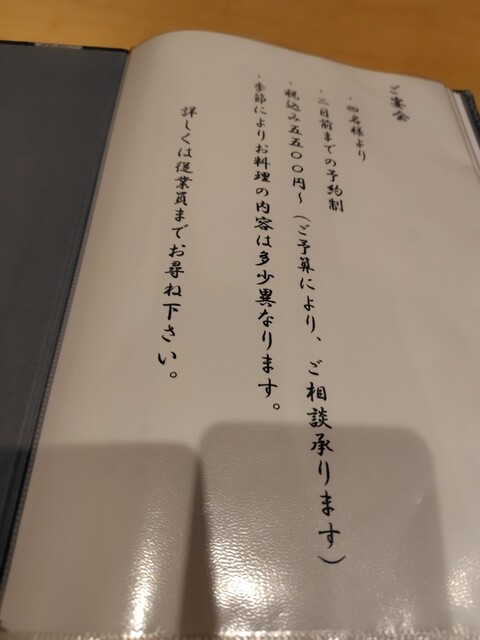 ご宴会
・四名様より
・二日前までの予約制
・税込み五五〇〇円～（ご予算により、ご相談承ります）
・季節によりお料理の内容は多少異なります。
詳しくは従業員までお尋ね下さい。